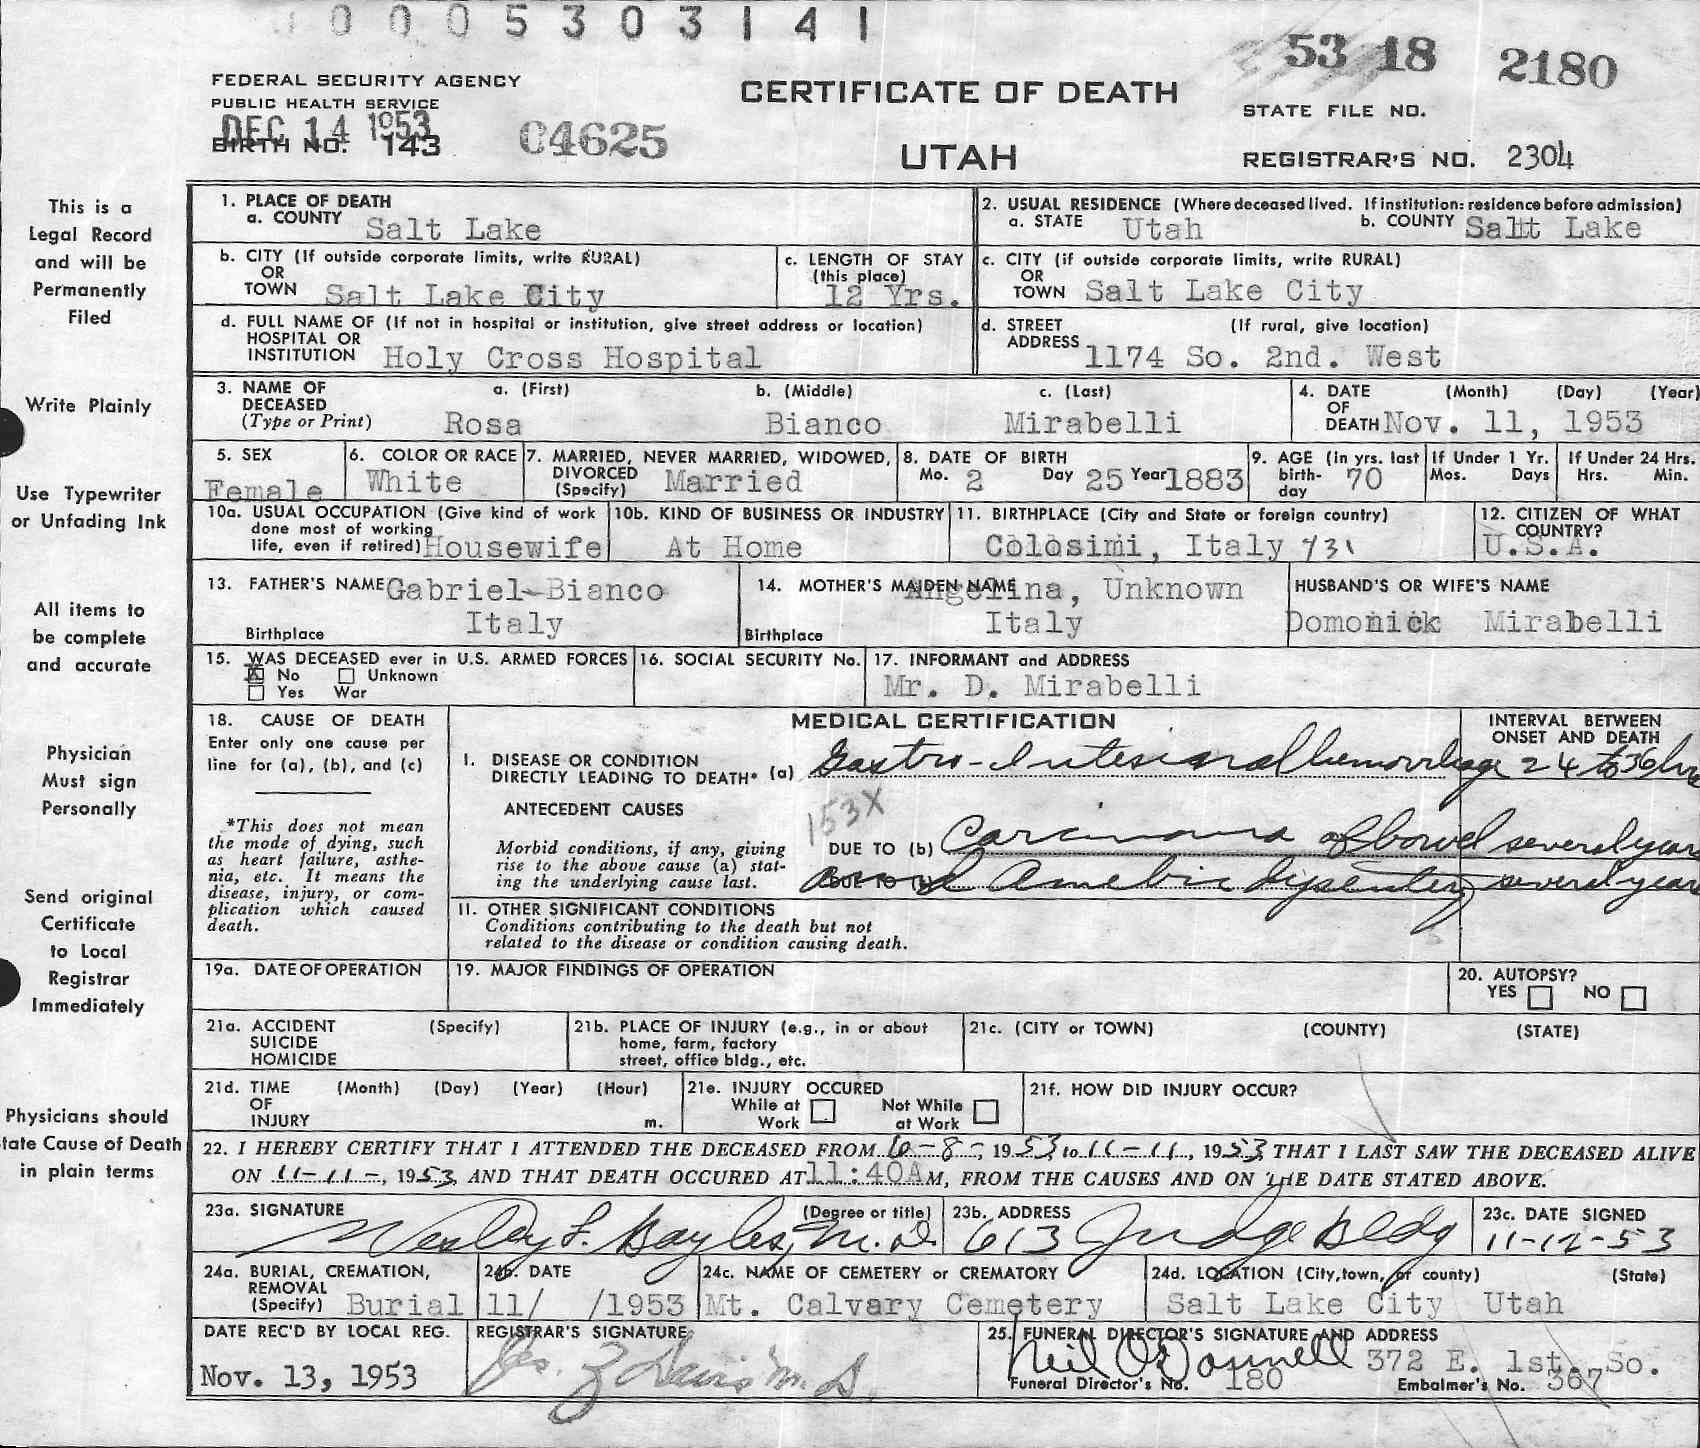 0 0 0 5 3 0 3 1 4 1
53 18 2180
FEDERAL SECURITY AGENCY
PUBLIC HEALTH SERVICE
CERTIFICATE OF DEATH
STATE FILE NO.
DEC 14 1953
BIRTH NO. 143
C4625
UTAH
REGISTRAR'S NO. 2304
This is a
Legal Record
and will be
Permanently
Filed
Write Plainly
Use Typewriter
or Unfading Ink
All items to
be complete
and accurate
Physician
Must sign
Personally
Send original
Certificate
to Local
Registrar
Immediately
Physicians should
tate Cause of Death
in plain terms
1. PLACE OF DEATH
a. COUNTY Salt Lake
2. USUAL RESIDENCE (Where deceased lived. If institution: residence before admission)
a. STATE Utah b. COUNTY Salt Lake
b. CITY (If outside corporate limits, write RURAL)
OR
TOWN Salt Lake City
c. LENGTH OF STAY
(this place)
12 Yrs.
c. CITY (if outside corporate limits, write RURAL)
OR
TOWN Salt Lake City
d. FULL NAME OF (If not in hospital or institution, give street address or location)
HOSPITAL OR
INSTITUTION Holy Cross Hospital
d. STREET (If rural, give location)
ADDRESS 1174 So. 2nd. West
3. NAME OF DECEASED (Type or Print)
a. (First) b. (Middle) c. (Last)
Rosa Bianco Mirabelli
4. DATE OF DEATH (Month) (Day) (Year)
Nov. 11, 1953
5. SEX
Female
6. COLOR OR RACE
White
7. MARRIED, NEVER MARRIED, WIDOWED,
DIVORCED
(Specify) Married
8. DATE OF BIRTH
Mo. 2 Day 25 Year 1883
9. AGE (in yrs. last
birth-
day 70
If Under 1 Yr.
Mos. Days
If Under 24 Hrs.
Hrs. Min.
10a. USUAL OCCUPATION (Give kind of work
done most of working
life, even if retired) Housewife
10b. KIND OF BUSINESS OR INDUSTRY
At Home
11. BIRTHPLACE (City and State or foreign country)
Colosimi, Italy 731
12. CITIZEN OF WHAT
COUNTRY?
U.S.A.
13. FATHER'S NAME Gabriel Bianco
Birthplace Italy
14. MOTHER'S MAIDEN NAME Angelina, Unknown
Birthplace Italy
HUSBAND'S OR WIFE'S NAME
Domonick Mirabelli
15. WAS DECEASED ever in U.S. ARMED FORCES
X No Unknown
Yes War
16. SOCIAL SECURITY No.
17. INFORMANT and ADDRESS
Mr. D. Mirabelli
18. CAUSE OF DEATH
Enter only one cause per
line for (a), (b), and (c)
*This does not mean
the mode of dying, such
as heart failure, asthe-
nia, etc. It means the
disease, injury, or com-
plication which caused
death.
MEDICAL CERTIFICATION
INTERVAL BETWEEN
ONSET AND DEATH
I. DISEASE OR CONDITION
DIRECTLY LEADING TO DEATH* (a) Gastro-Intesinal hemorrhage 24 to 36 hrs
ANTECEDENT CAUSES
153X
Morbid conditions, if any, giving
rise to the above cause (a) stat-
ing the underlying cause last.
DUE TO (b) Carcinoma of bowel several years
DUE TO and Amebic dysentery several years
II. OTHER SIGNIFICANT CONDITIONS
Conditions contributing to the death but not
related to the disease or condition causing death.
19a. DATE OF OPERATION
19. MAJOR FINDINGS OF OPERATION
20. AUTOPSY?
YES NO
21a. ACCIDENT (Specify)
SUICIDE
HOMICIDE
21b. PLACE OF INJURY (e.g., in or about
home, farm, factory
street, office bldg., etc.
21c. (CITY or TOWN) (COUNTY) (STATE)
21d. TIME (Month) (Day) (Year) (Hour)
OF
INJURY m.
21e. INJURY OCCURED
While at Work Not While at Work
21f. HOW DID INJURY OCCUR?
22. I HEREBY CERTIFY THAT I ATTENDED THE DECEASED FROM 6-8-, 1953 to 11-11, 1953 THAT I LAST SAW THE DECEASED ALIVE
ON 11-11-, 1953, AND THAT DEATH OCCURED AT 11:40A M, FROM THE CAUSES AND ON THE DATE STATED ABOVE.
23a. SIGNATURE (Degree or title)
Wesley F. Bayles, M.D.
23b. ADDRESS
613 Judge Bldg
23c. DATE SIGNED
11-12-53
24a. BURIAL, CREMATION,
REMOVAL
(Specify) Burial
24b. DATE
11/ /1953
24c. NAME OF CEMETERY or CREMATORY
Mt. Calvary Cemetery
24d. LOCATION (City, town, or county) (State)
Salt Lake City Utah
DATE REC'D BY LOCAL REG.
Nov. 13, 1953
REGISTRAR'S SIGNATURE
Davis M.D.
25. FUNERAL DIRECTOR'S SIGNATURE AND ADDRESS
Neil O'Donnell 372 E. 1st. So.
Funeral Director's No. 180 Embalmer's No. 367